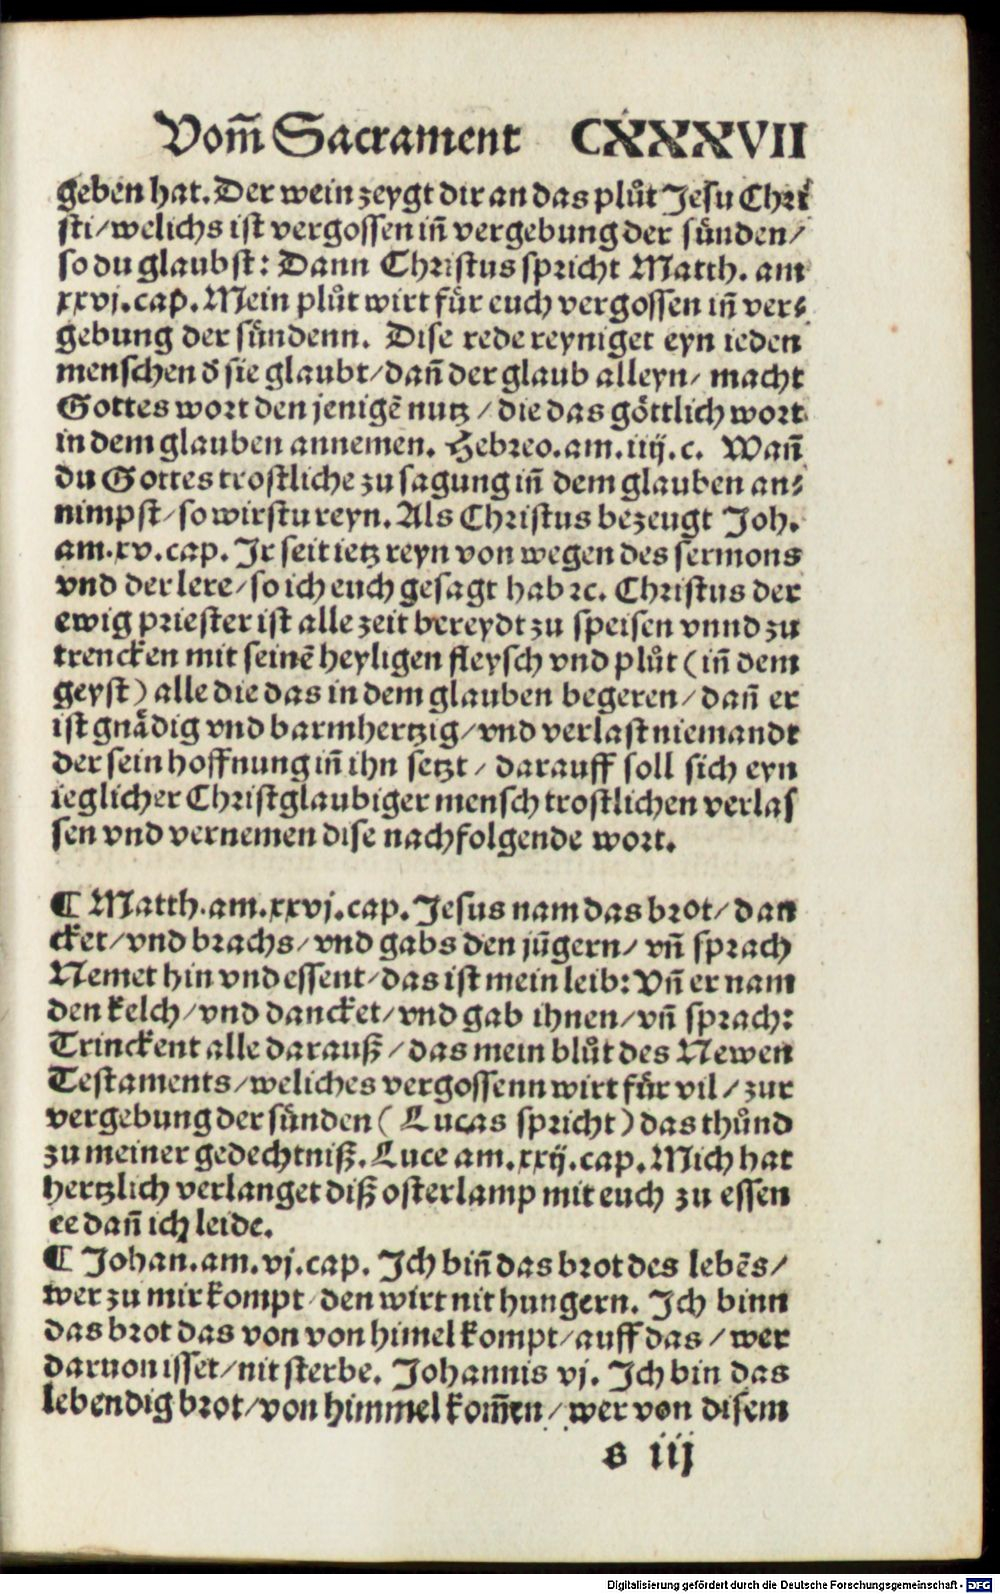 Vom̃ Sacrament CXXXVII
geben hat. Der wein zeygt dir an das plůt Jesu Chri
sti/welichs ist vergossen iñ vergebung der sünden/
so du glaubst: Dann Christus spricht Matth. am
xxvj.cap. Mein plůt wirt für euch vergossen iñ ver⸗
gebung der sündenn. Dise rede reyniget eyn ieden
menschen d̕ sie glaubt/dañ der glaub alleyn/ macht
Gottes wort den jenigẽ nutz / die das göttlich wort
in dem glauben annemen. Hebreo.am.iiij.c. Wañ
du Gottes trostliche zusagung iñ dem glauben an⸗
nimpst/so wirstu reyn. Als Christus bezeugt Joh.
am.xv.cap. Jr seit ietz reyn von wegen des sermons
vnd der lere/so ich euch gesagt hab ꝛc. Christus der
ewig priester ist alle zeit bereydt zu speisen vnnd zu
trencken mit seinẽ heyligen fleysch vnd plůt (iñ dem
geyst) alle die das in dem glauben begeren/ dañ er
ist gnädig vnd barmhertzig/vnd verlast niemandt
der sein hoffnung iñ ihn setzt / darauff soll sich eyn
ieglicher Christglaubiger mensch trostlichen verlas
sen vnd vernemen dise nachfolgende wort.
¶ Matth.am.xxvj.cap. Jesus nam das brot/ dan
cket/vnd brachs/vnd gabs den jüngern/ vñ sprach
Nemet hin vnd essent/das ist mein leib: Vñ er nam
den kelch/vnd dancket/vnd gab ihnen/vñ sprach:
Trinckent alle darauß / das mein blůt des Newen
Testaments/weliches vergossenn wirt für vil / zur
vergebung der sünden ( Lucas spricht) das thůnd
zu meiner gedechtniß. Luce am.xxij.cap. Mich hat
hertzlich verlanget diß osterlamp mit euch zu essen
ee dañ ich leide.
¶ Johan.am.vj.cap. Jch biñ das brot des lebẽs/
wer zu mir kompt/den wirt nit hungern. Jch binn
das brot das von von himel kompt/auff das / wer
daruon isset/nit sterbe. Johannis vj. Jch bin das
lebendig brot/von himmel kom̃en/ wer von disem
s iij
Digitalisierung gefördert durch die Deutsche Forschungsgemeinschaft - DFG